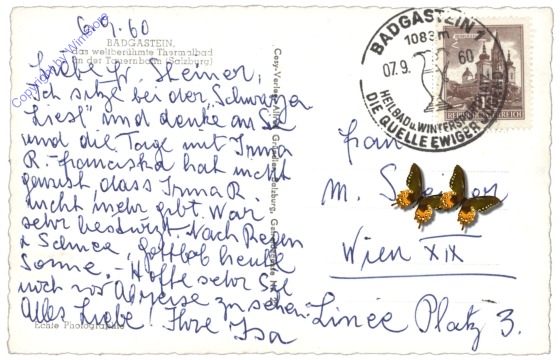 6.9.60
BADGASTEIN,
das weltberühmte Thermalbad
an der Tauernbahn (Salzburg)
Copyright by WinStore
Liebe Fr. Steiner,
Ich sitze bei der "Schwarzen
Liesl" und denke an Sie
und die Tage mit Irma
R. Franziska hat nicht
gewusst, dass Irma R.
nicht mehr gibt. War
sehr bestürzt. Nach Regen
u Schnee, gottlob heute
Sonne. - Hoffe sehr Sie
noch vor Abreise zu sehen.
Alles Liebe! Ihre Isa
Echte Photographie
Cosy-Verlag Alfred Gründler, Salzburg,
BADGASTEIN 1
1083 m
07.9. 60
HEILBAD u. WINTERSPORTPLATZ
DIE QUELLE EWIGER JUGEND
REPUBLIK ÖSTERREICH
Frau
M. Steiner
Wien XIX
Linée Platz 3.